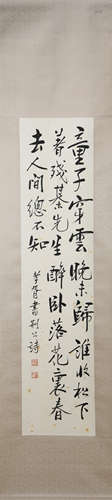 童子穿雲晚未歸誰收松下
着殘棊先生醉卧落花裏春
去人間總不知
書荊公詩